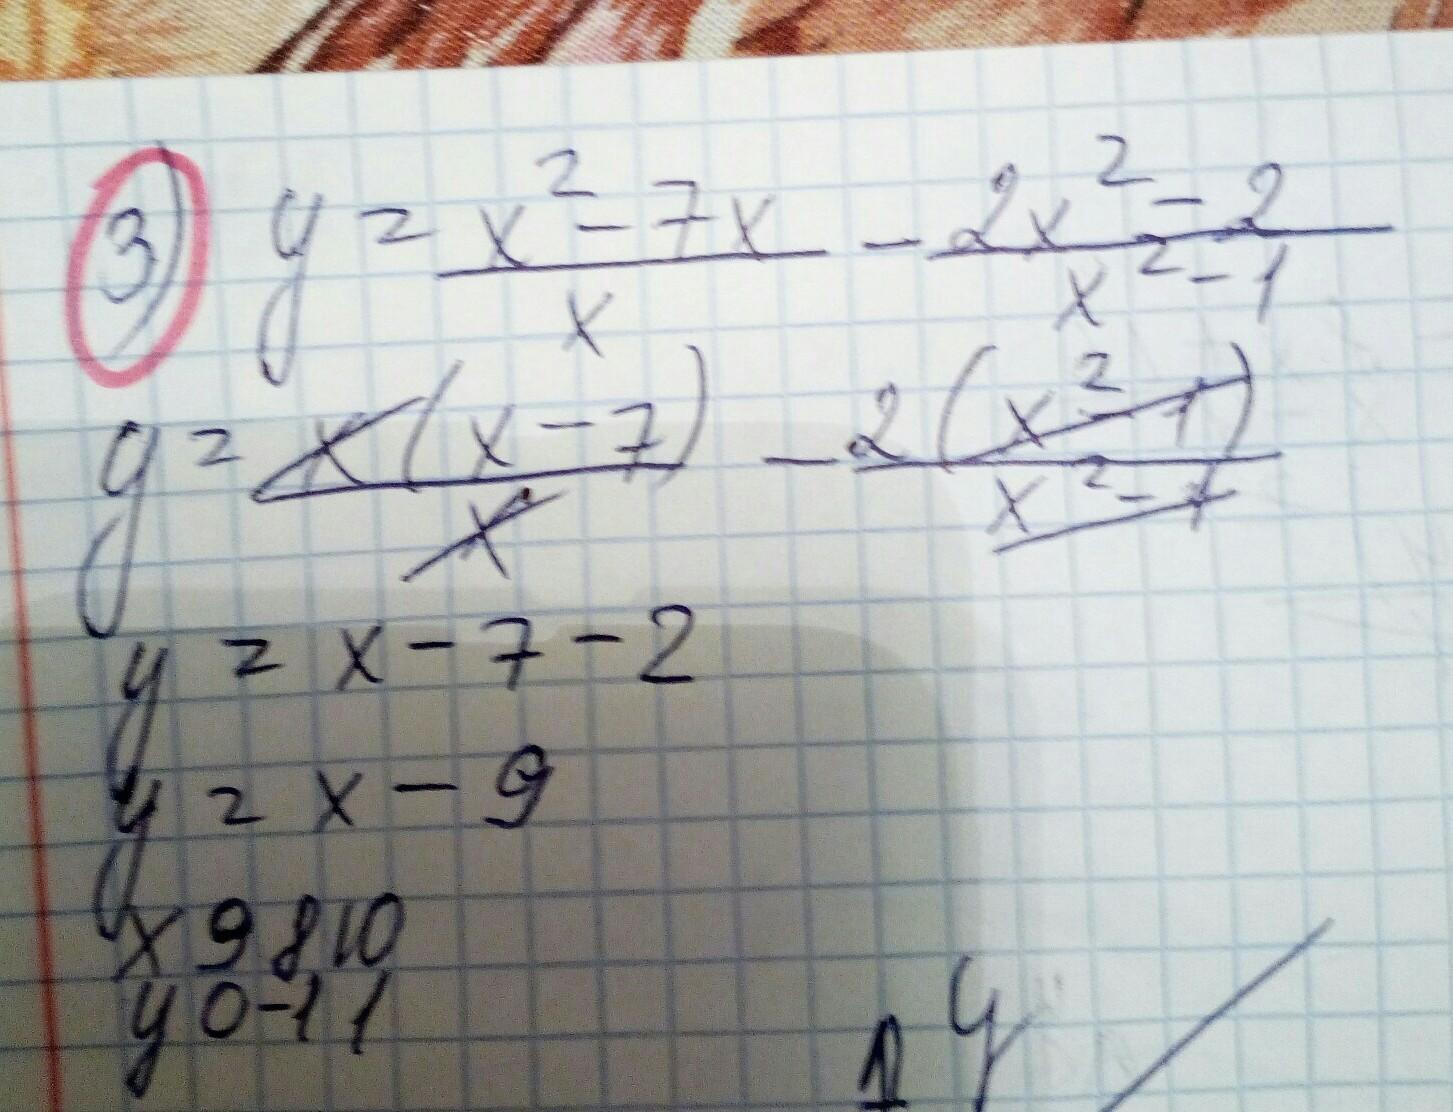 3) y = (x² - 7x)/x - (2x² - 2)/(x² - 1)
y = x(x - 7)/x - 2(x² - 1)/(x² - 1)
y = x - 7 - 2
y = x - 9
x 9 8 10
y 0 -1 1
y
1